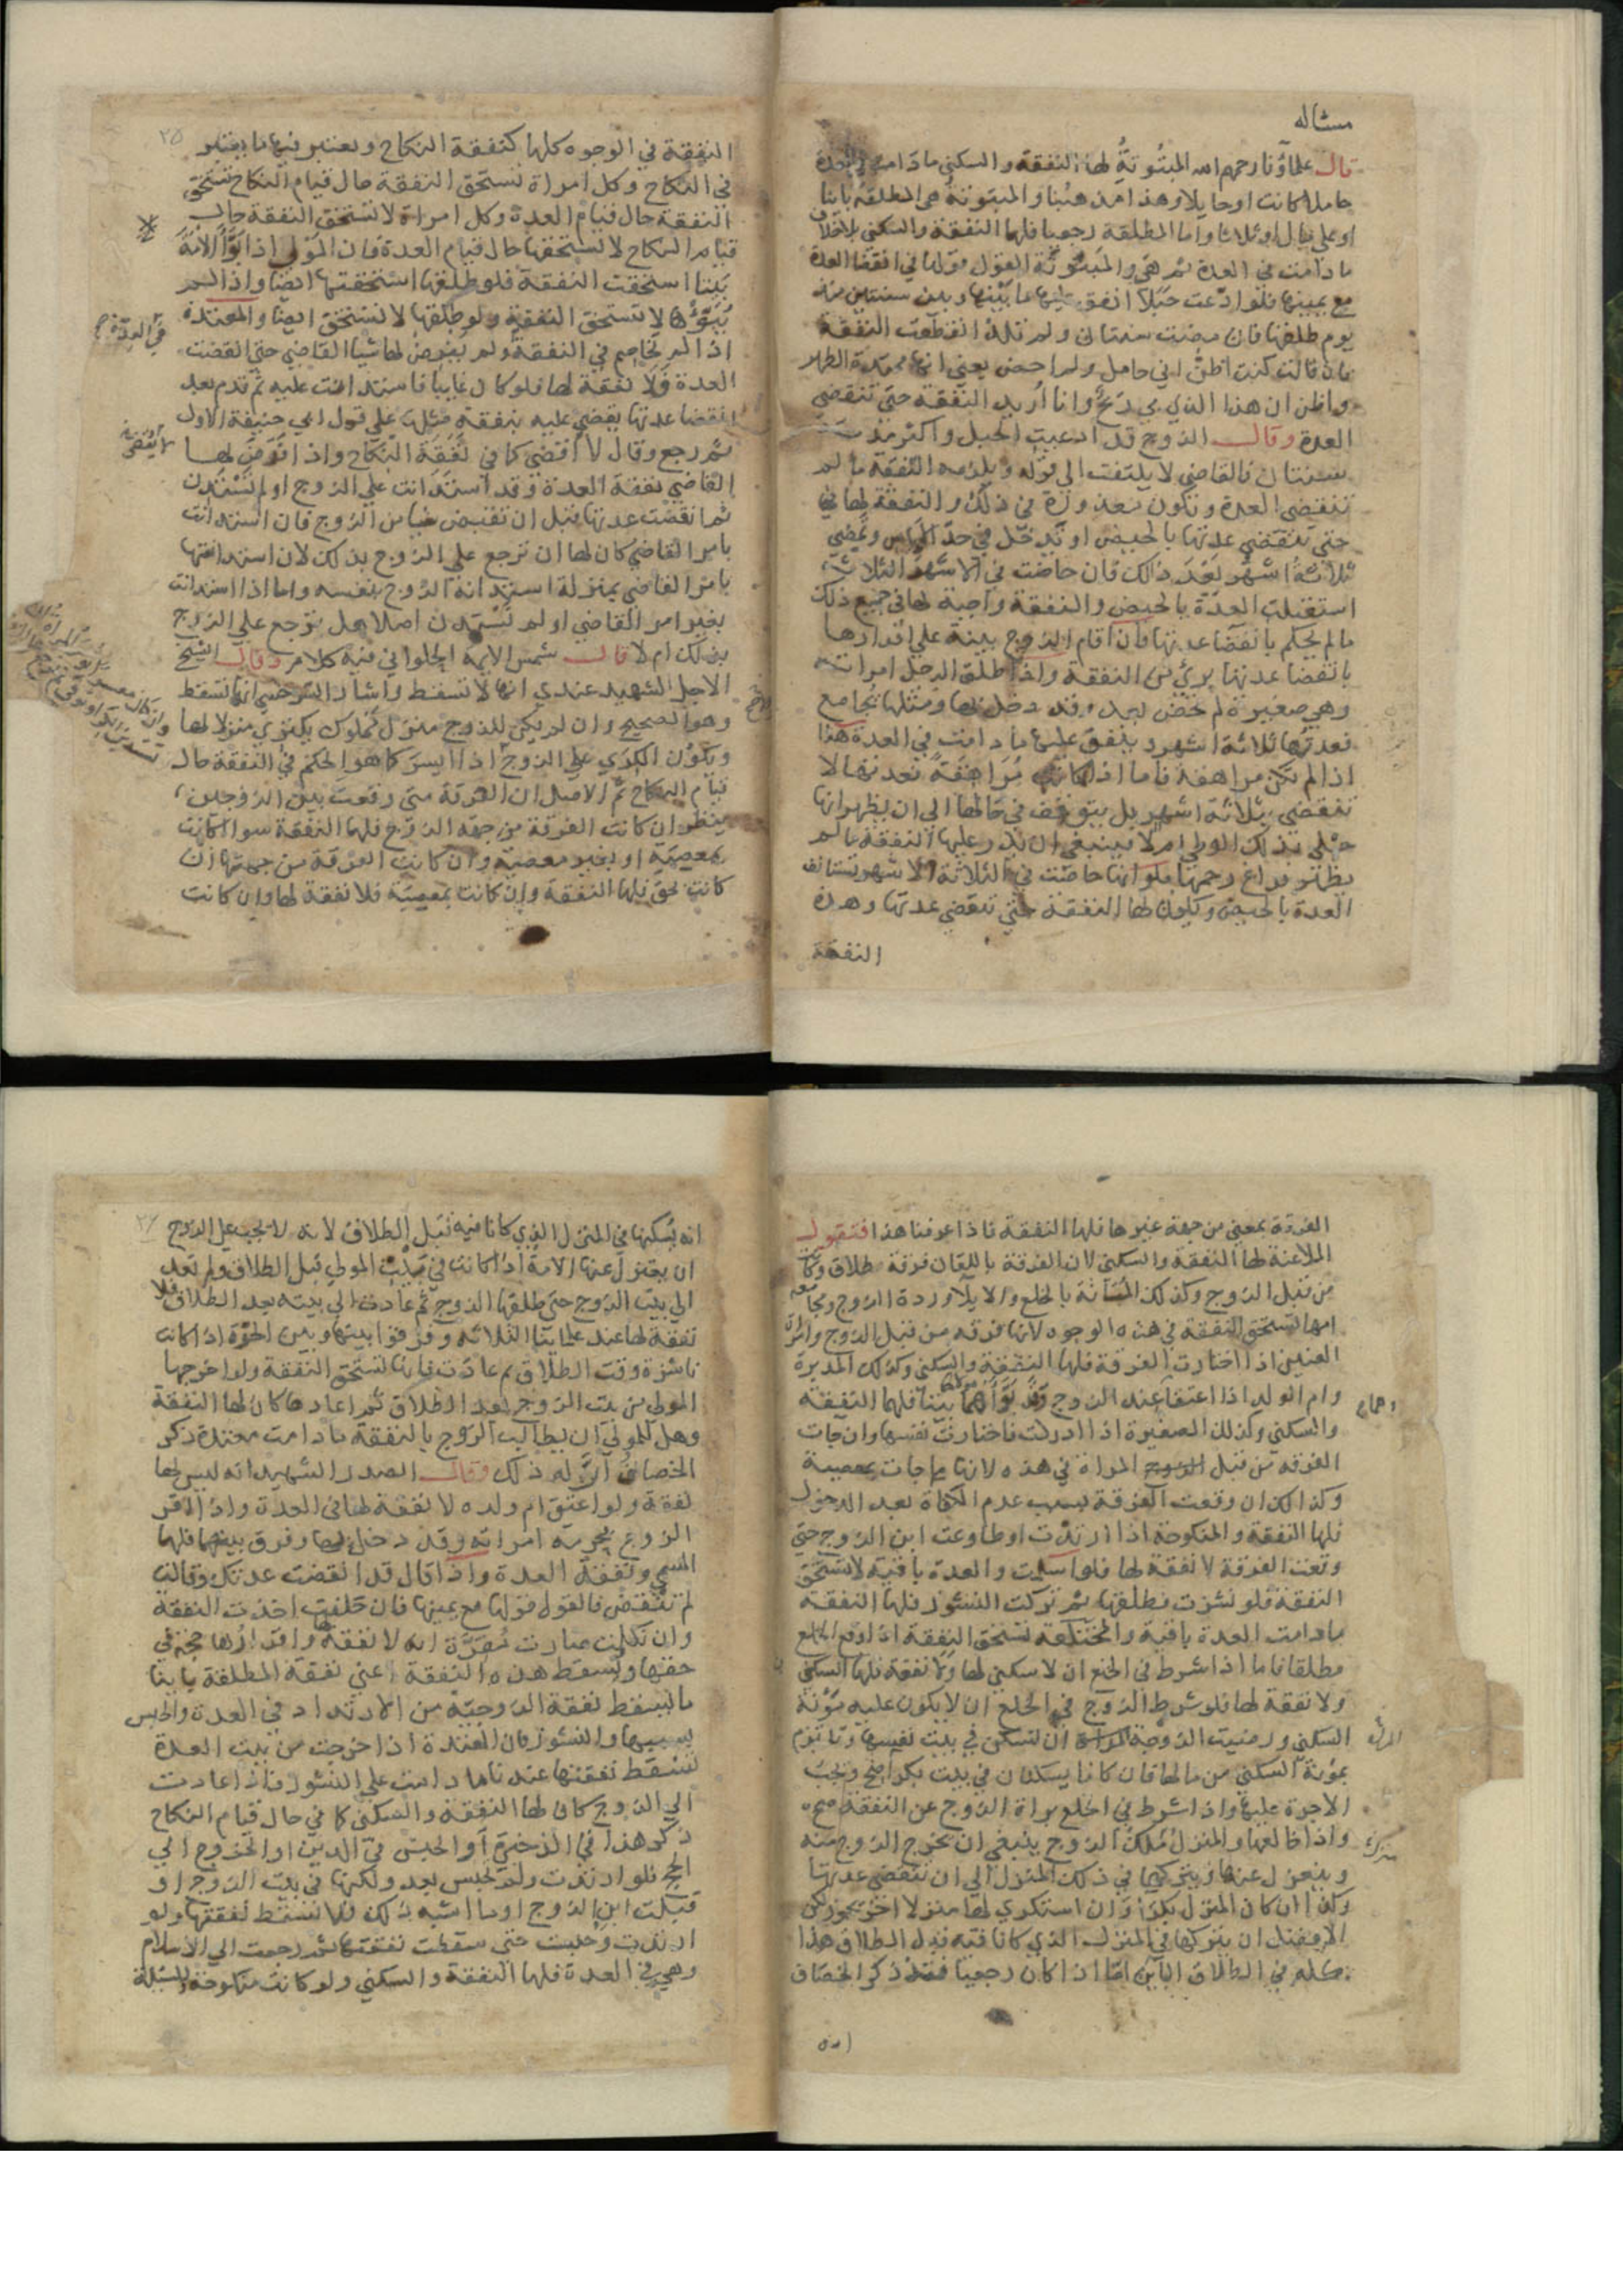 مسئالة
قال علماؤنا رحمهم الله المبتوتة لها النفقة والسكنى ما دامت في العدة
حاملا كانت او حايلا وهذا مذهبنا والمبتوتة هي المطلقة باينا
او على مال او ثلاثا واما المطلقة رجعيا فلها النفقة والسكنى بلا خلاف
ما دامت في العدة ثم هي والمبتوتة القول قولها في انقضا العدة
مع يمينها فلو ادعت حبلا انفق عليها ما بينها وبين سنتين منذ
يوم طلقها فان مضت سنتان ولم تلد انقطعت النفقة
فان قالت كنت اظن اني حامل ولم احض يعني انها ممتدة الطهر
واظن ان هذا الذي بي ريح وانا اريد النفقة حتى تنقضي
العدة وقال الزوج قد ادعيت الحبل واكثر مدته
سنتان فالقاضي لا يلتفت الى قوله ويلزمه النفقة ما لم
تنقضي العدة وتكون معذورة في ذلك والنفقة لها في
حتى تنقضي عدتها بالحيض او تدخل في حد الاياس وتمضي
ثلاثة اشهر بعد ذلك فان حاضت في الاشهر الثلاثة
استقبلت العدة بالحيض والنفقة واجبة لها في جميع ذلك
ما لم يحكم بانقضا عدتها فان اقام الزوج بينة على اقرارها
بانقضا عدتها بري من النفقة واذا طلق الرجل امراته
وهي صغيرة لم تحض بعد وقد دخل بها ومثلها تجامع
فعدتها ثلاثة اشهر وينفق عليها ما دامت في العدة هذا
اذا لم تكن مراهقة فاما اذا كانت مراهقة فعدتها لا
تنقضي بثلاثة اشهر بل يتوقف في حالها الى ان يظهر انها
حبلى بذلك الوطي ام لا فينبغي ان يدر عليها النفقة ما لم
يظهر فراغ رحمها فلو انها حاضت في الثلاثة الاشهر تستانف
العدة بالحيض ويكون لها النفقة حتى تنقضي عدتها وهذه
النفقة
٢٥
النفقة في الوجوه كلها كنفقة النكاح ويعتبر فيها ما يعتبر
في النكاح وكل امراة تستحق النفقة حال قيام النكاح تستحق
النفقة حال قيام العدة وكل امراة لا تستحق النفقة حال
قيام النكاح لا تستحقها حال قيام العدة فان المولى اذا بوأ الامة
بيتا استحقت النفقة فلو طلقها استحقتها ايضا واذا لم
يبوئها لا تستحق النفقة ولو طلقها لا تستحق ايضا والمعتدة
اذا لم تخاصم في النفقة ولم يفرض لها شيا القاضي حتى انقضت
في العدة
العدة فلا نفقة لها فلو كان غايبا فاستدانت عليه ثم قدم بعد
انقضا عدتها يقضي عليه بنفقة مثلها على قول ابي حنيفة الاول
ثم رجع وقال لا اقضي كما في نفقة النكاح واذا فرض لها
القاضي نفقة العدة وقد استدانت على الزوج او لم تستدن
ثم انقضت عدتها قبل ان تقبض شيا من الزوج فان استدانت
بامر القاضي كان لها ان ترجع على الزوج بذلك لان استدانتها
بامر القاضي بمنزلة استدانة الزوج بنفسه واما اذا استدانت
بغير امر القاضي او لم تستدن اصلا هل ترجع على الزوج
بذلك ام لا قال شمس الايمة الحلواني فيه كلام وقال الشيخ
الاجل الشهيد عندي انها لا تسقط واشار السرخسي انها تسقط
وهو الصحيح وان لم يكن للزوج منزل مملوك يكتري منزلا لها
ويكون الكرى على الزوج اذا ايسر كما هو الحكم في النفقة حال
قيام النكاح ثم الاصل ان الفرقة متى وقعت بين الزوجين
ينظر ان كانت الفرقة من جهة الزوج فلها النفقة سوا كانت
بمعصية او بغير معصية وان كانت الفرقة من جهتها ان
كانت بحق فلها النفقة وان كانت بمعصية فلا نفقة لها وان كانت
الفرقة بمعنى من جهة غيرها فلها النفقة فاذا عرفنا هذا فنقول
الملاعنة لها النفقة والسكنى لان الفرقة باللعان فرقة طلاق وكانت
من قبل الزوج وكذلك المبانة بالخلع والايلا وردة الزوج ومجامعة
امها تستحق النفقة في هذه الوجوه لانها فرقة من قبل الزوج وامراة
العنين اذا اختارت الفرقة فلها النفقة والسكنى وكذلك المدبرة
وام الولد اذا اعتقا عند الزوج وقد بوأهما بيتا فلهما النفقة
والسكنى وكذلك الصغيرة اذا ادركت فاختارت نفسها وان جات
الفرقة من قبل المراة في هذه لانها ما جات بمعصية
وكذلك ان وقعت الفرقة بسبب عدم الكفاة بعد الدخول
فلها النفقة والمنكوحة اذا ارتدت او طاوعت ابن الزوج حتى
وقعت الفرقة لا نفقة لها فلو اسلمت والعدة باقية لا تستحق
النفقة فلو نشزت فطلقها ثم تركت النشوز فلها النفقة
ما دامت العدة باقية والمختلعة تستحق النفقة اذا وقع الخلع
مطلقا فاما اذا شرط في الخلع ان لا سكنى لها ولا نفقة فلها السكنى
ولا نفقة لها فلو شرط الزوج في الخلع ان لا يكون عليه مؤنة
السكنى ورضيت الزوجة ان تسكن في بيت نفسها وتلتزم
بمؤنة السكنى من مالها فان كانا يسكنان في بيت بكرا صح وتجب
الاجرة عليها واذا شرط في الخلع براة الزوج عن النفقة صح
واذا خالعها والمنزل ملك الزوج ينبغي ان يخرج الزوج منه
وينعزل عنها ويتركها في ذلك المنزل الى ان تنقضي عدتها
وكذا ان كان المنزل بكرا وان استكرى لها منزلا اخر يجوز لكن
الافضل ان يتركها في المنزل الذي كانا فيه قبل الطلاق هذا
كله في الطلاق الباين اما اذا كان رجعيا فقد ذكر الخصاف
انه
انه يسكنها في المنزل الذي كانا فيه قبل الطلاق لانه لا يجب على الزوج
ان يعتزل عنها الامة اذا كانت في بيت المولى قبل الطلاق ولم تعد
الى بيت الزوج حتى طلقها الزوج ثم عادت الى بيته بعد الطلاق فلا
نفقة لها عند علماينا الثلاثة وفرقوا بينها وبين الحرة اذا كانت
ناشزة وقت الطلاق ثم عادت فانها تستحق النفقة ولو اخرجها
المولى من بيت الزوج بعد الطلاق ثم اعادها كان لها النفقة
وهل للمولى ان يطالب الزوج بالنفقة ما دامت معتدة ذكر
الخصاف ان له ذلك وقال الصدر الشهيد انه ليس لها
نفقة ولو اعتق ام ولده لا نفقة لها في العدة واذا اقر
الزوج بحرمة امراته وقد دخل بها وفرق بينهما فلها
المسمى ونفقة العدة واذا قال قد انقضت عدتك وقالت
لم تنقض فالقول قولها مع يمينها فان حلفت اخذت النفقة
وان نكلت صارت مقرة انه لا نفقة لها واقرارها حجة في
حقها ويسقط هذه النفقة اعني نفقة المطلقة باينا
ما يسقط نفقة الزوجية من الارتداد في العدة والحبس
بسببها والنشوز فان المعتدة اذا خرجت من بيت العدة
تسقط نفقتها عندنا ما دامت على النشوز فاذا عادت
الى الزوج كان لها النفقة والسكنى كما في حال قيام النكاح
ذكر هذا في الذخيرة او الحبس في الدين او الخروج الى
الحج فلو ارتدت ولم تحبس بعد ولكنها في بيت الزوج او
قبلت ابن الزوج او ما اشبه ذلك فلا تسقط نفقتها ولو
ارتدت وحبست حتى سقطت نفقتها ثم رجعت الى الاسلام
وهي في العدة فلها النفقة والسكنى ولو كانت منكوحة والمسئلة